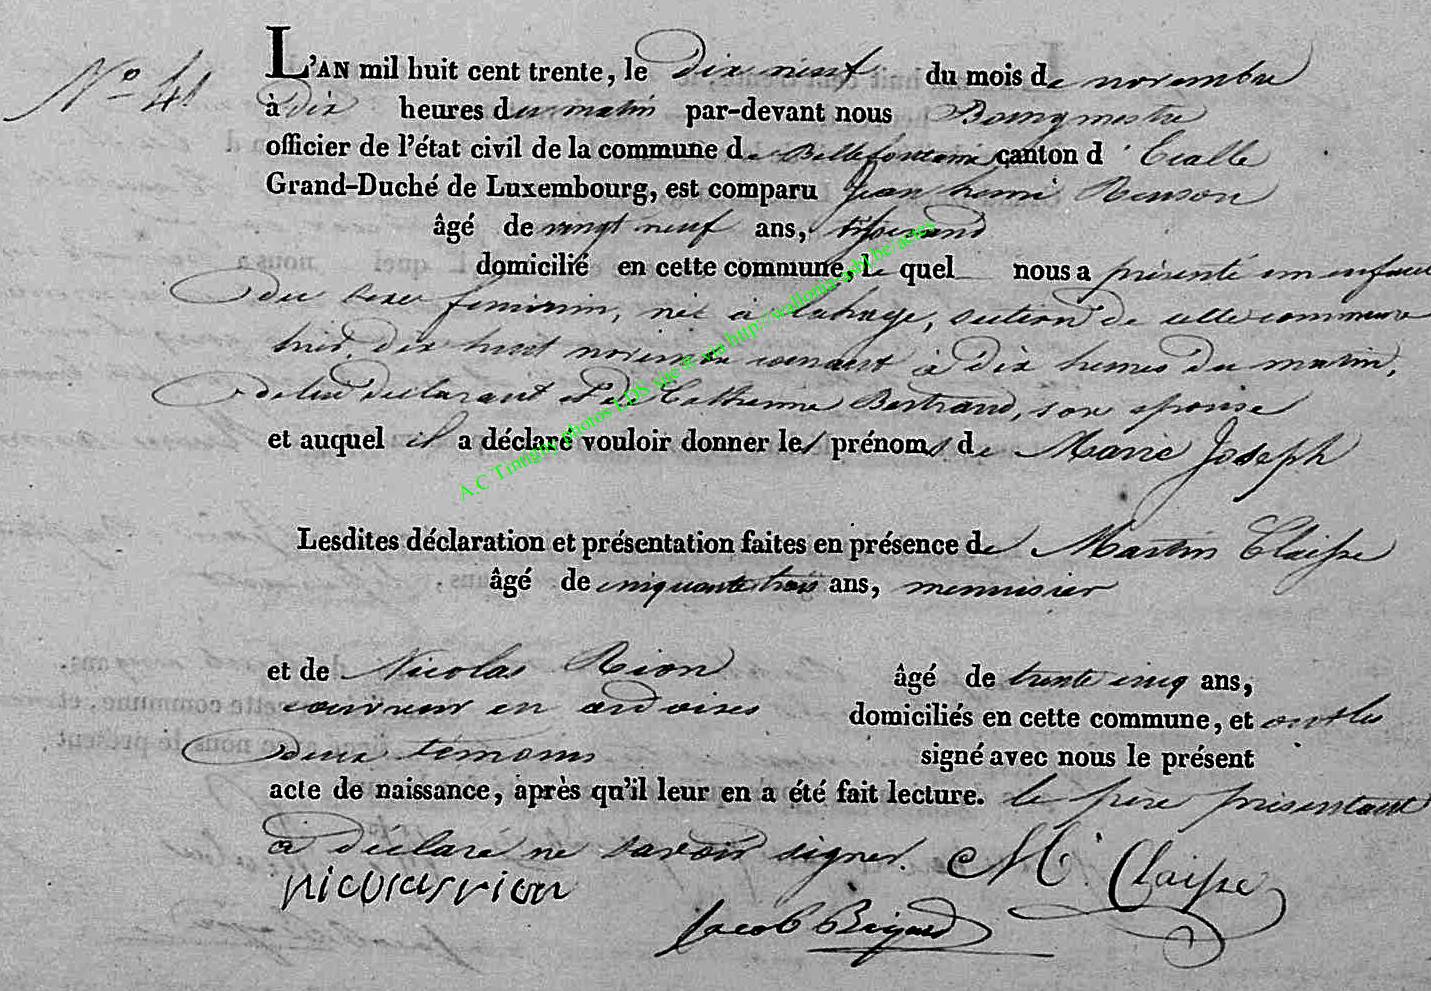 N° 41
L'AN mil huit cent trente, le dix neuf du mois de novembre
à dix heures du matin par-devant nous Bourgmestre
officier de l'état civil de la commune de Bellefontaine canton d'Etalle
Grand-Duché de Luxembourg, est comparu Jean henri Renson
âgé de vingt neuf ans, tisserand
domicilié en cette commune, le quel nous a présenté un enfant
du sexe feminin, née à Lahage, section de cette commune
hier, dix huit novembre courant à dix heures du matin,
de lui declarant et de Catherine Bertrand, son epouse
et auquel il a déclaré vouloir donner les prénoms de Marie Joseph
Lesdites déclaration et présentation faites en présence de Martin Claisse
âgé de cinquante trois ans, menuisier
et de Nicolas Rion âgé de trente cinq ans,
couvreur en ardoises domiciliés en cette commune, et ont les
deux témoins signé avec nous le présent
acte de naissance, après qu'il leur en a été fait lecture. le père présentant
a déclaré ne savoir signer. M. Claisse
nicolas rion
Jacob
A.C Tintigny photos LDS site & via http://wallonia-asbl.be/actes